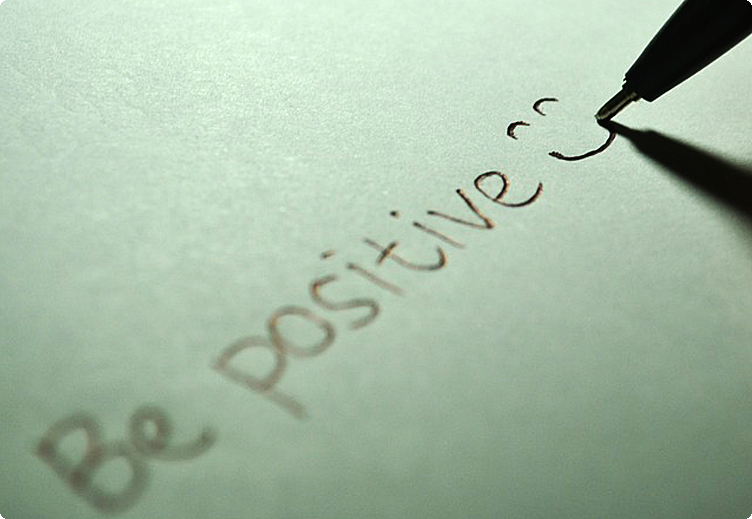 Be positive